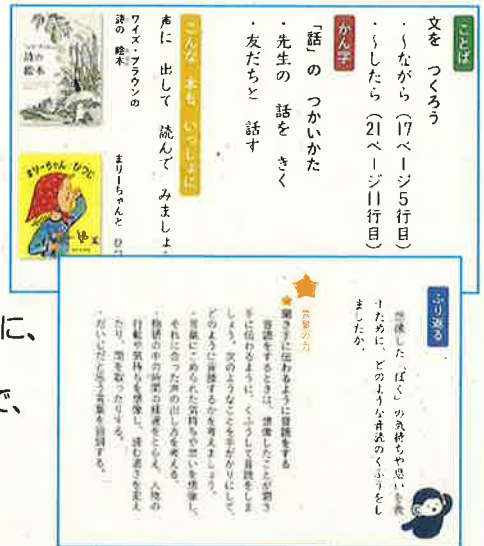 ことば
文を つくろう
・〜ながら（17ページ5行目）
・〜したら（21ページ11行目）
かん字
「話」の つかいかた
・先生の 話を きく
・友だちと 話す
こんな 本も いっしょに
声に 出して 読んで みましょ
ワイズ・ブラウンの
詩の 絵本
詩の
絵本
まりーちゃんと ひつ
まりーちゃん ひつじ
ふり返る
想像した「ぼく」の気持ちや思いを表
すために、どのような音読のくふうをし
ましたか。
言葉の力
聞き手に伝わるように音読をする
音読をするときは、想像したことが聞き
手に伝わるように、くふうして音読をしま
しょう。次のようなことを手がかりにして、
どのように音読するかを考えましょう。
・言葉にこめられた気持ちや思いを想像し、
それに合った声の出し方を考える。
・物語の中の時間の経過をとらえ、人物の
行動や気持ちを想像し、読む速さを変え
たり、間を取ったりする。
・だいじだと思う言葉を強調する。
に、
で、